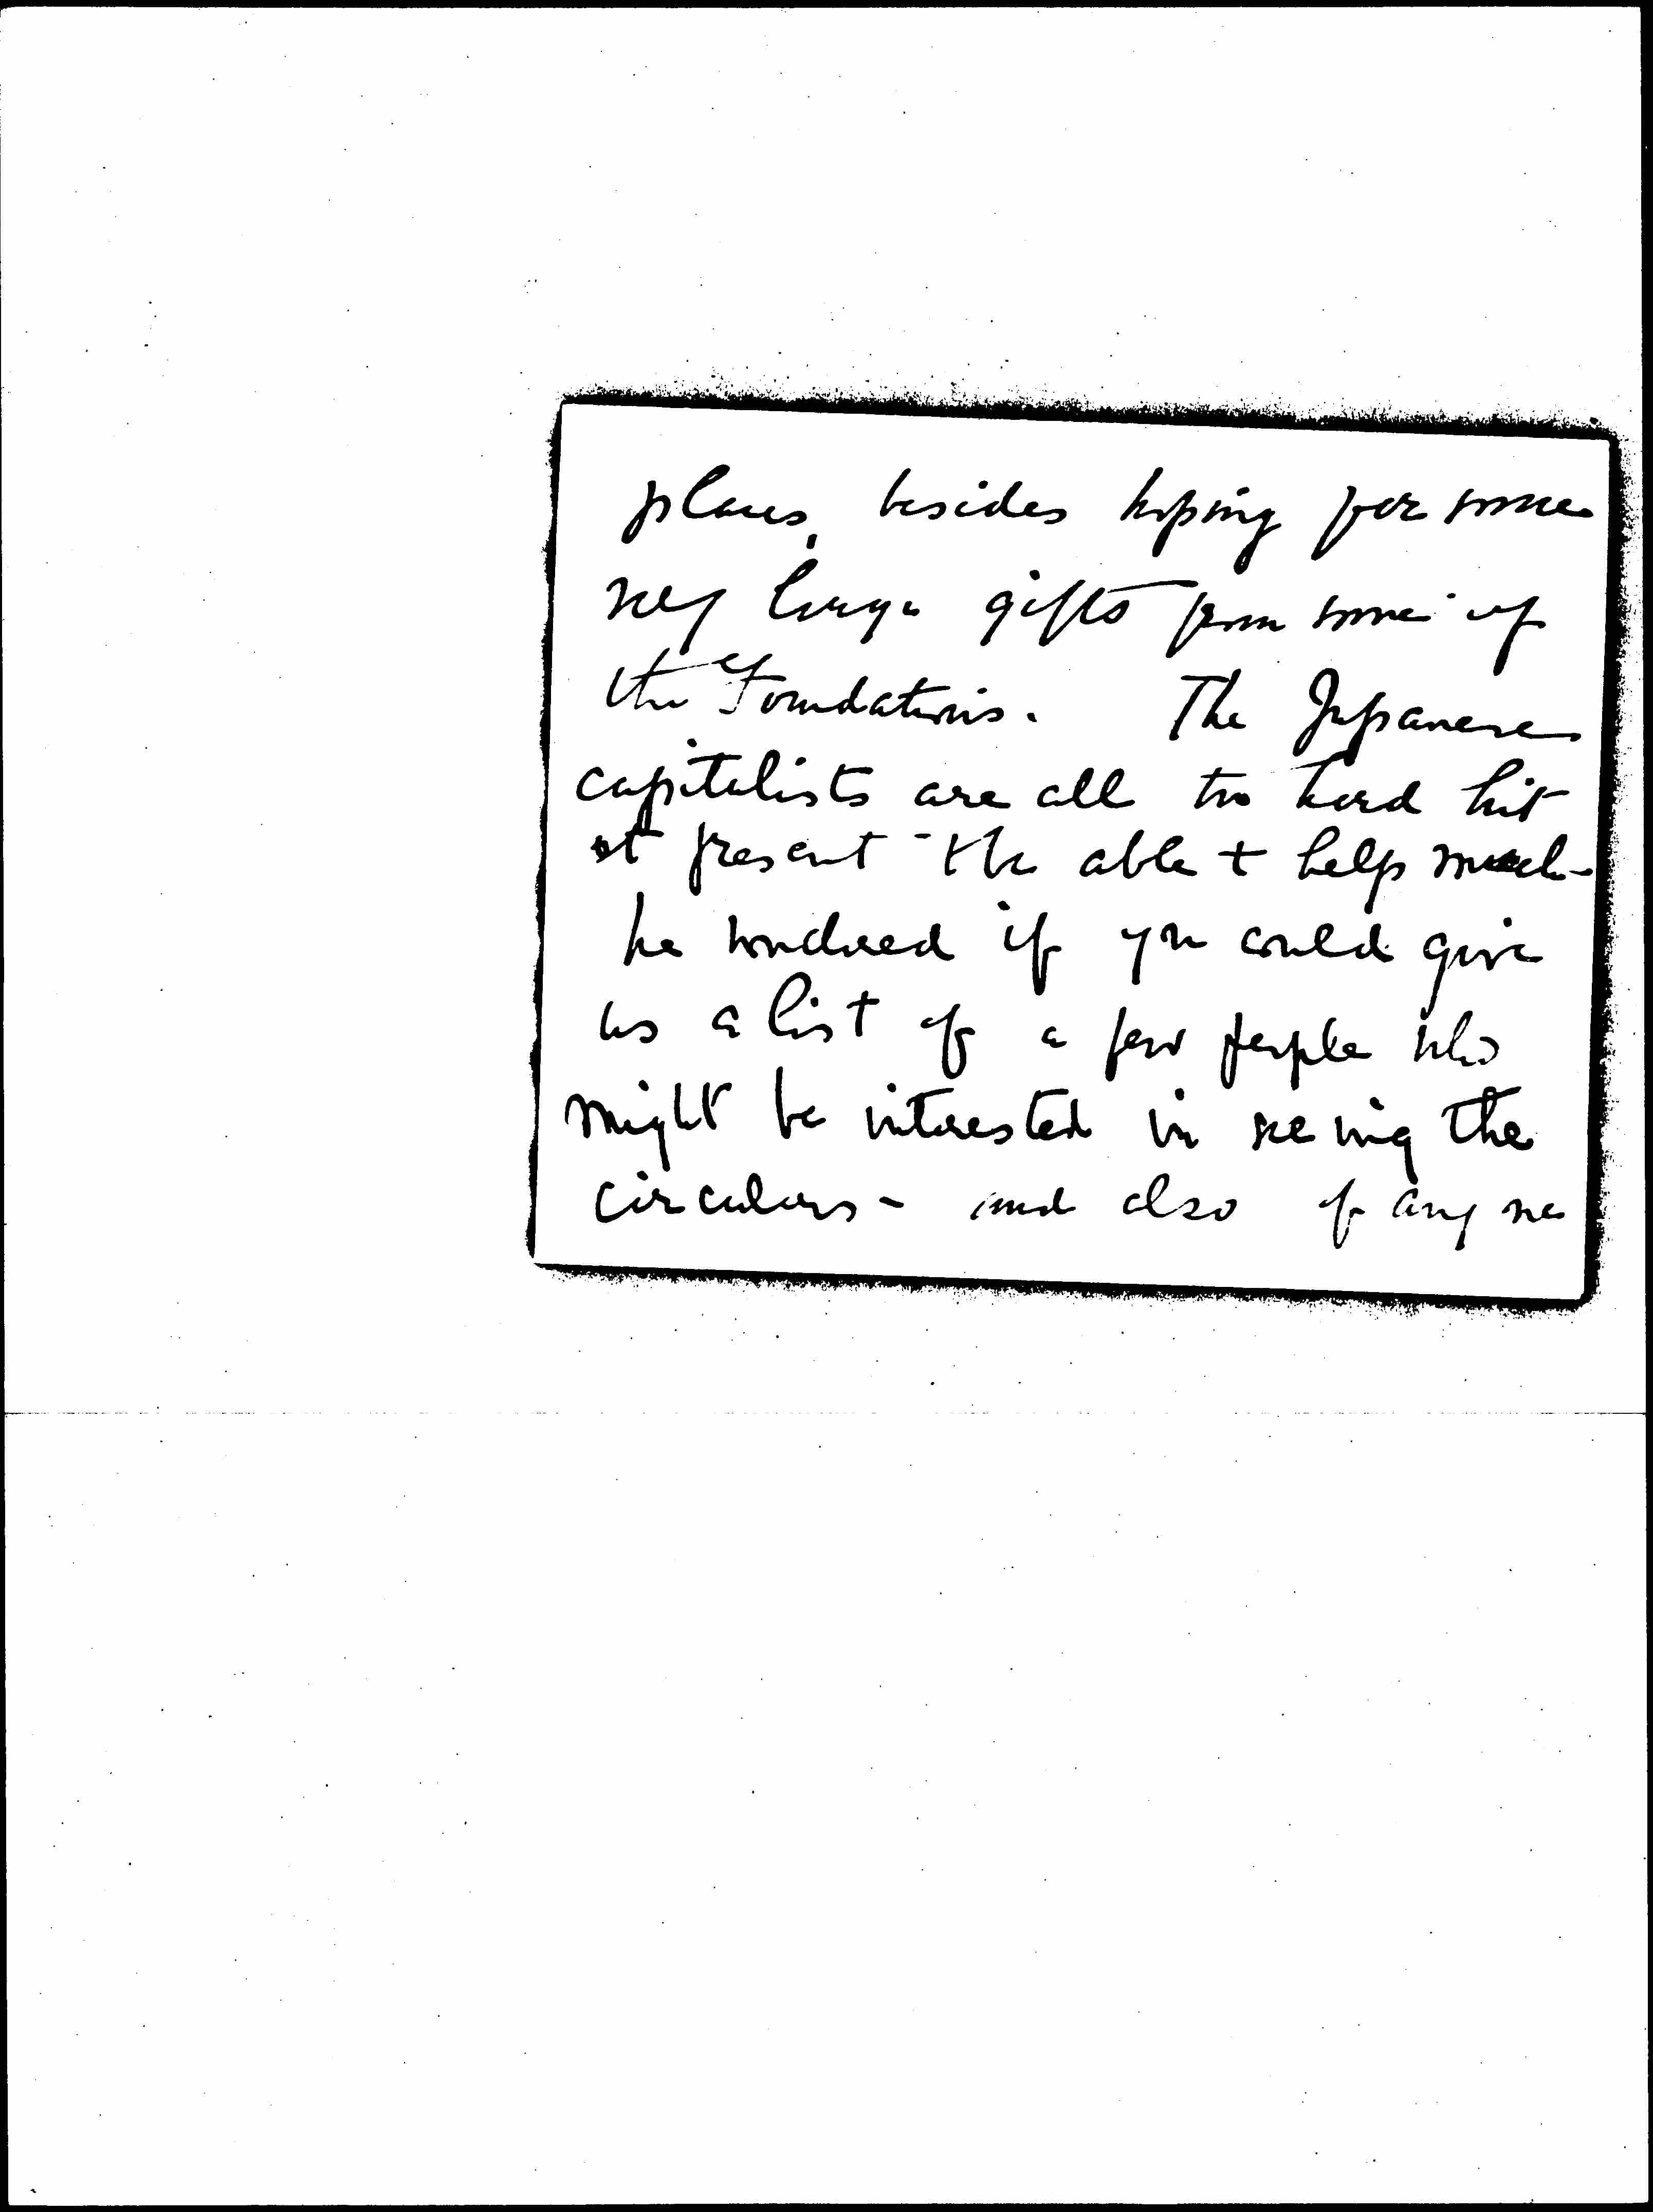 places, besides hoping for some
very large gifts from some of
the Foundations. The Japanese
capitalists are all too hard hit
at present to be able to help much -
he wondered if you could give
us a list of a few people who
might be interested in seeing the
circulars - and also of any one